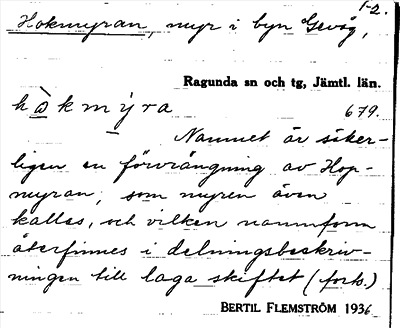 1-2.
Hokmyran, myr i byn Gevåg,
Ragunda sn och tg, Jämtl. län.
hòkmýra
679.
Namnet är säker-
ligen en förvrängning av Hop-
myran, som myren även
kallas, och vilken namnform
återfinnes i delningsbeskriv-
ningen till laga skiftet (forts.)
BERTIL FLEMSTRÖM 1936